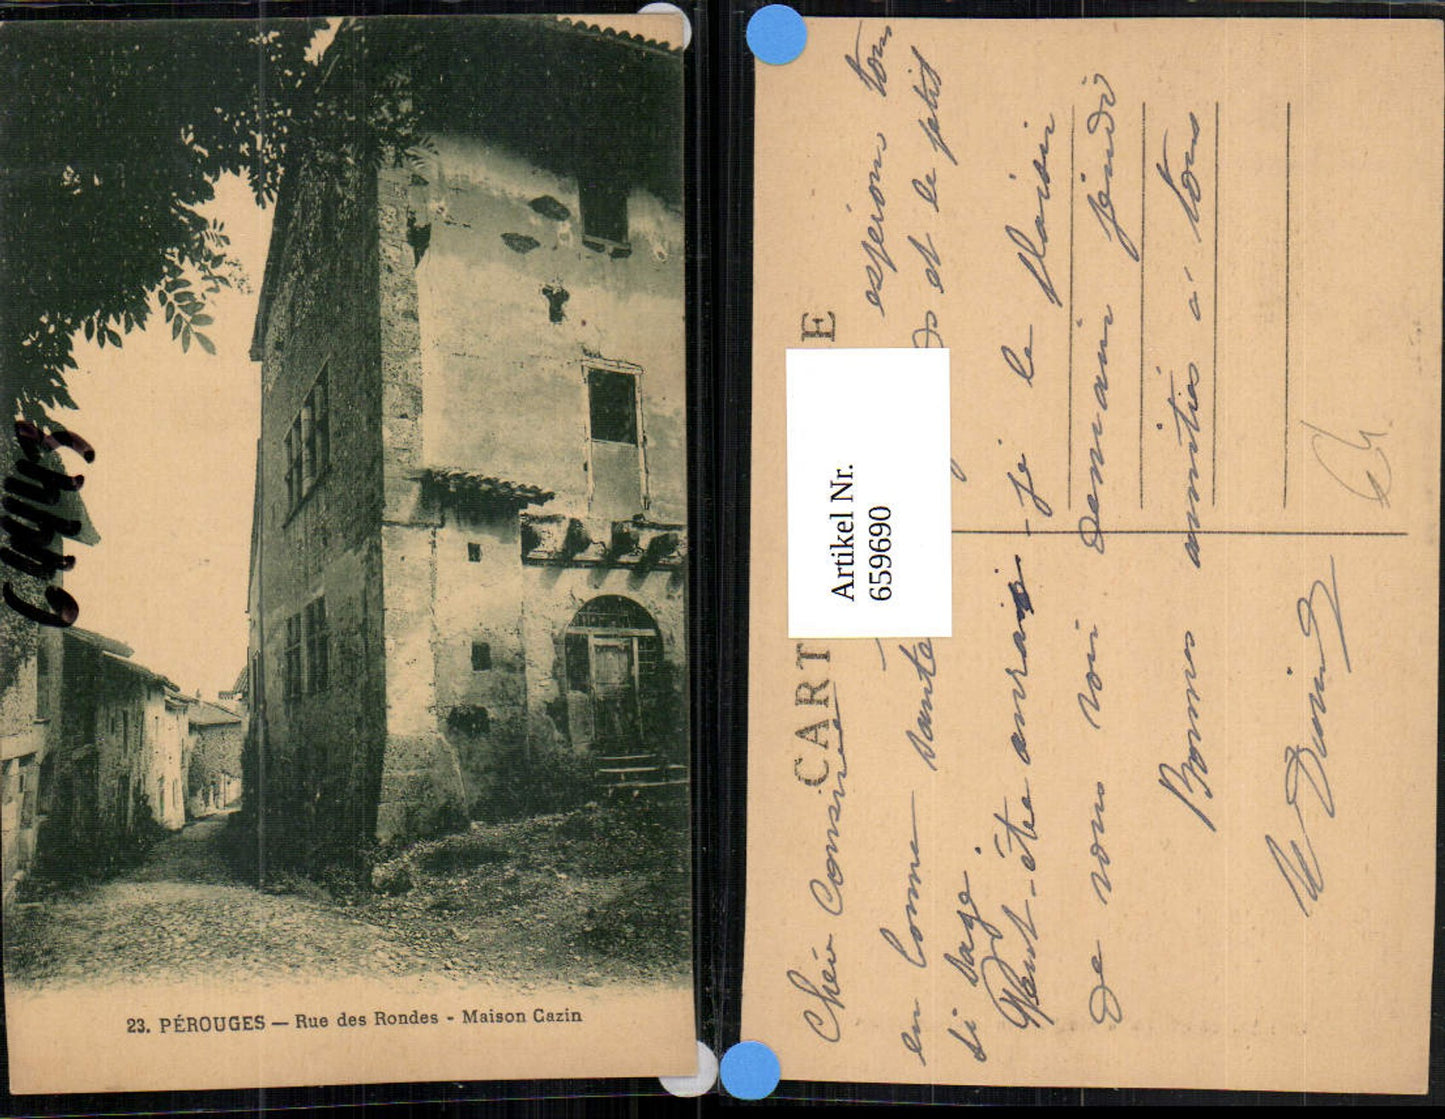 23. PÉROUGES — Rue des Rondes - Maison Cazin
64443
CART E
Artikel Nr.
659690
Cher Cousin espérons tous
en bonne santé et le petit
si sage.
Peut-être aurais-je le plaisir
de vous voir demain jeudi
Bonnes amitiés à tous